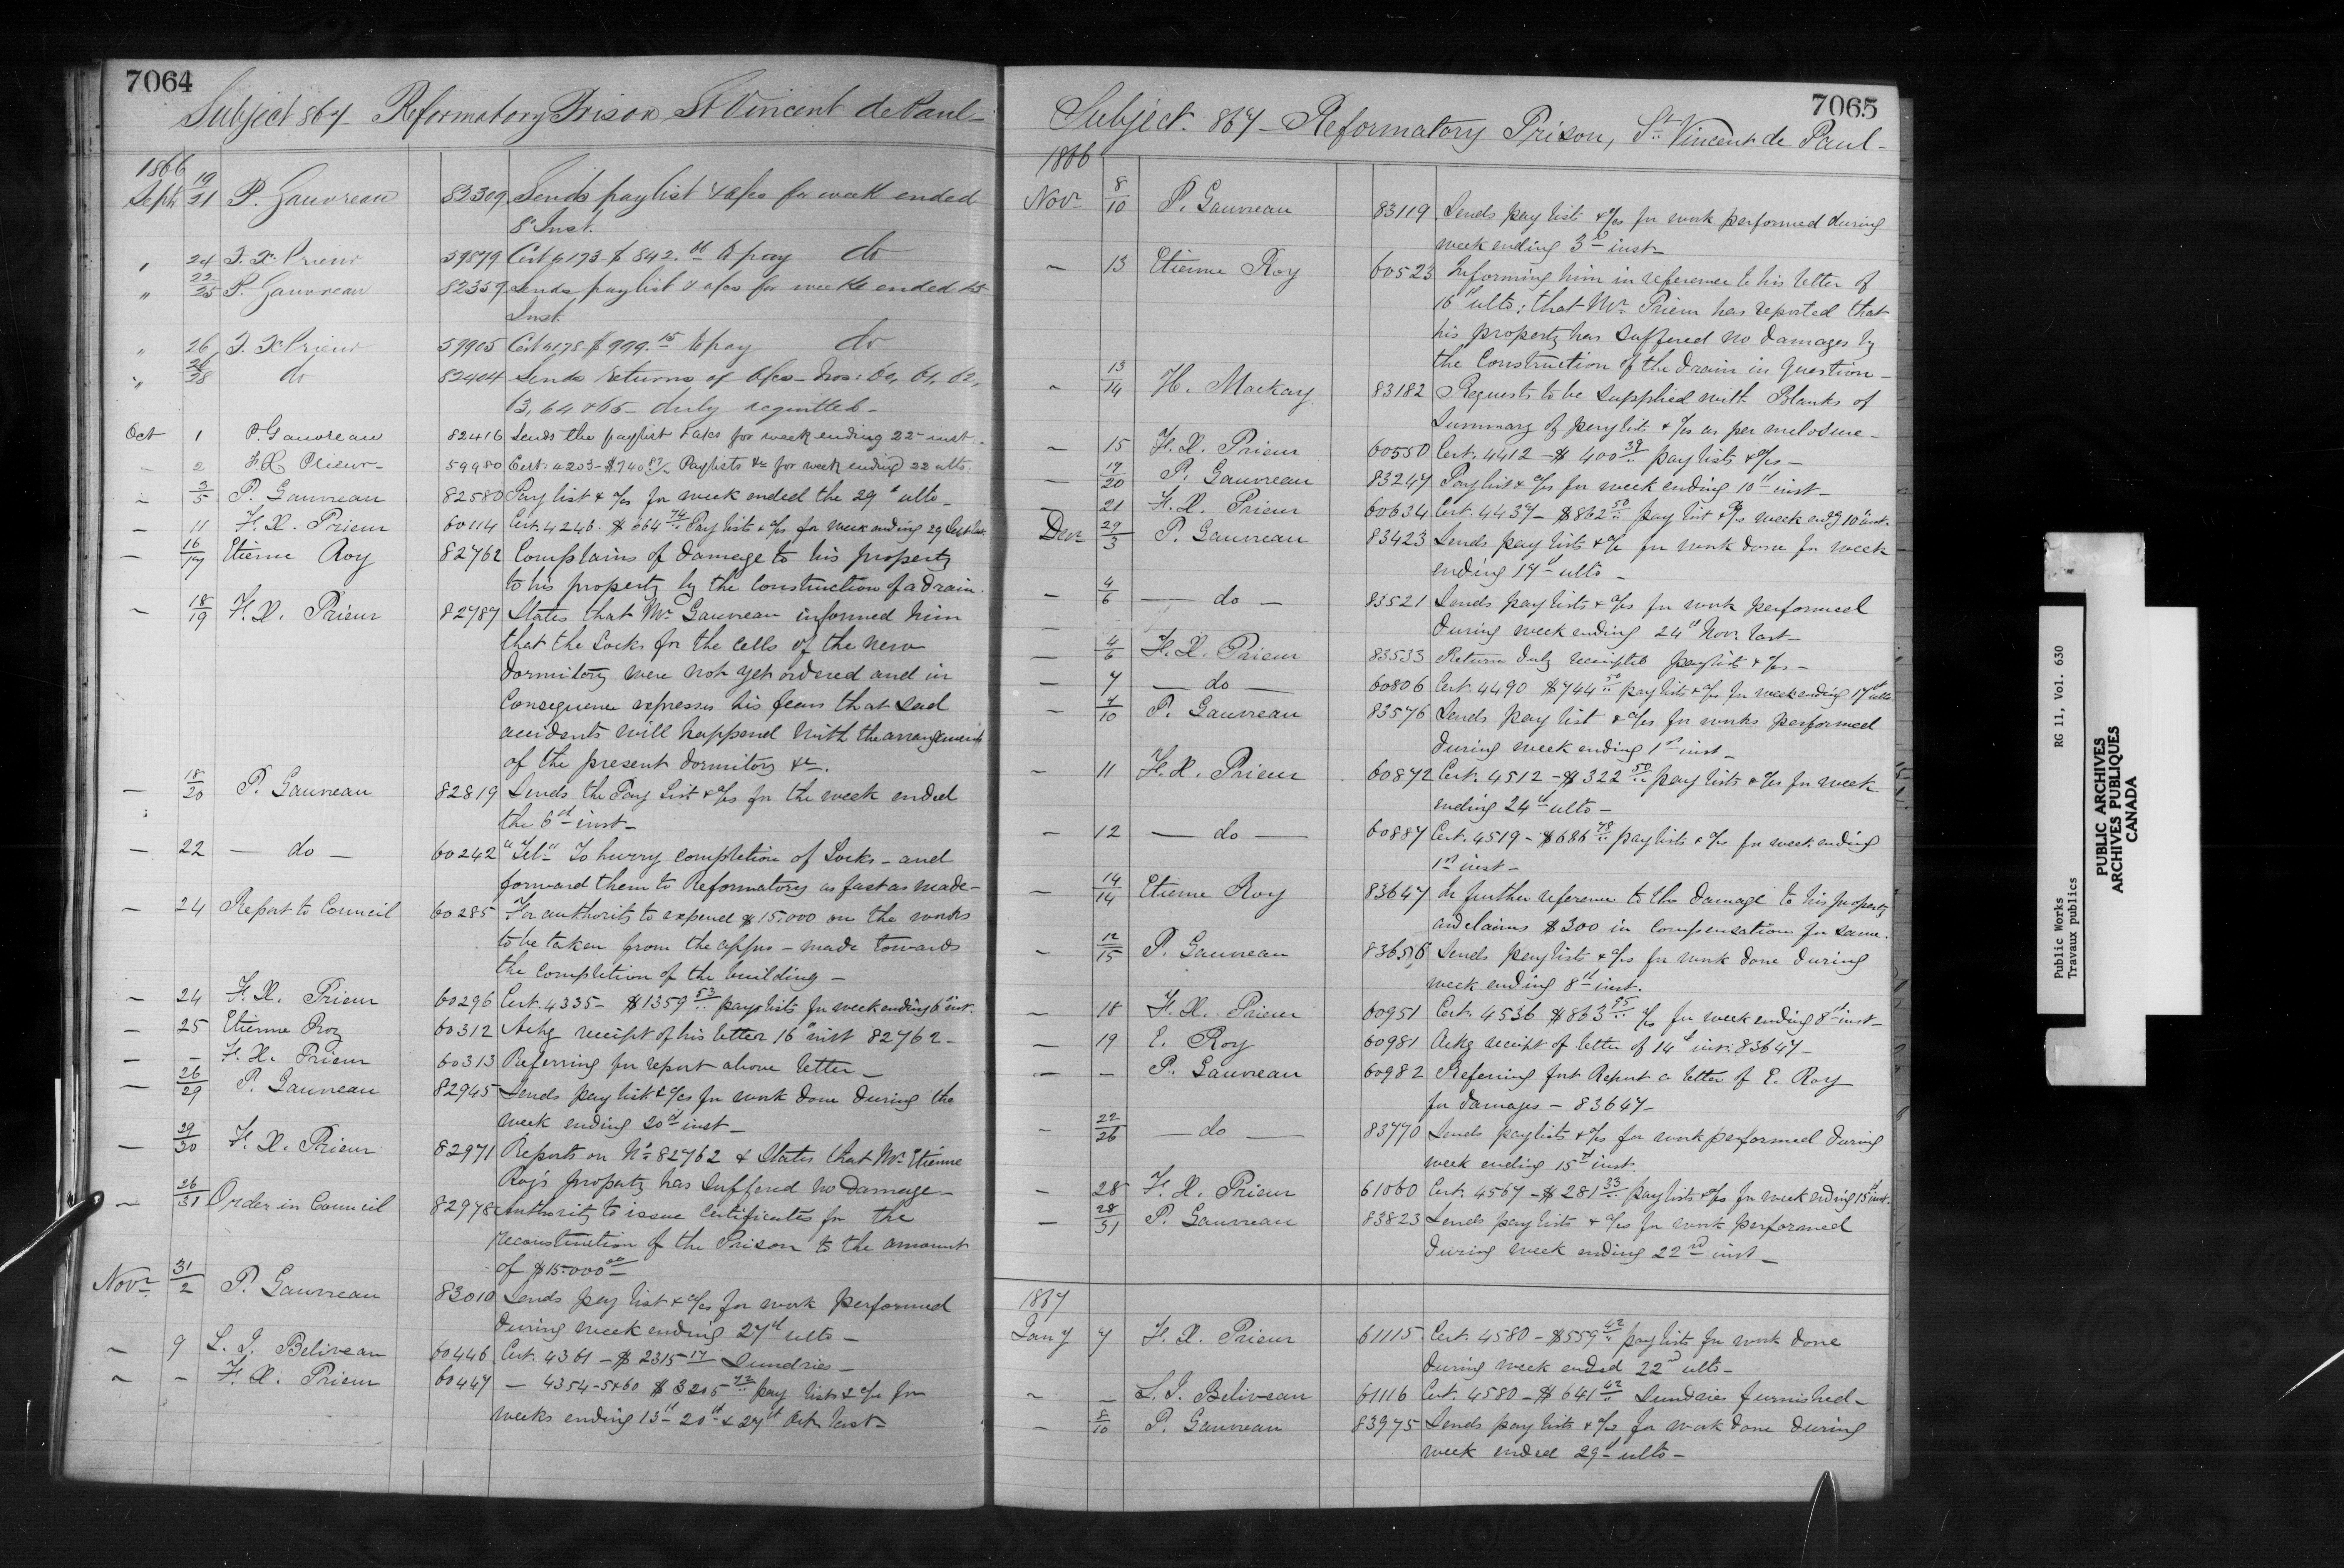 7064
Subject 867 - Reformatory Prison St Vincent de Paul -
1866
Septr 19/21 P. Gauvreau 82309 Sends pay list & a/cs for week ended
8 Inst.
" 24 F. X. Prieur 59879 Cert 4173 - $ 842. to pay do
" 22/25 P. Gauvreau 82359 Sends pay list & a/cs for week ended 15
Inst.
" 26 F. X. Prieur 59905 Cert 4178 - $ 999.15 to pay do
" 28 do 82404 Sends returns of A/cs - Nos:
63, 64 & 65 - duly acquitted -
Oct 1 P. Gauvreau 82416 Sends the paylist & a/cs for week ending 22 inst -
- 2 F. X. Prieur - 59980 Cert: 4203 - $740 Paylists &c for week ending 22 ulto.
- 3/5 P. Gauvreau 82580 Pay list & a/cs for week ended the 29th ulto -
- 11 F. X. Prieur 60114 Cert. 4246 - $ 64 74 Pay lists & a/cs for week ending 29 Sept last
- 16/17 Etienne Roy 82762 Complains of damage to his property
to his property by the construction of a drain.
- 18/19 F. X. Prieur 82787 States that Mr Gauvreau informed him
that the Locks for the cells of the new
dormitory were not yet ordered and in
consequence expresses his fears that sad
accidents will happend with the arrangements
of the present dormitory &c.
- 18/20 P. Gauvreau 82819 Sends the Pay List & a/cs for the week ended
the 6th inst -
- 22 - do - 60242 "Tel-" To hurry completion of Locks - and
forward them to Reformatory as fast as made -
- 24 Report to Council 60285 For authority to expend $15.000 on the works
to be taken from the appn - made towards
the completion of the building -
- 24 F. X. Prieur 60296 Cert. 4335 - $1359 53 paylists for week ending 6th inst.
- 25 Etienne Roy 60312 Ackg receipt of his letter 16th inst 82762 -
- - F. X. Prieur 60313 Referring for report above letter -
- 26/29 P. Gauvreau 82945 Sends pay list & a/cs for work done during the
week ending 20th inst -
- 29/30 F. X. Prieur 82971 Reports on No 82762 & States that Mr Etienne
Roy's property has suffered no damage -
- 26/31 Order in Council 82978 Authority to issue Certificates for the
reconstruction of the Prison to the amount
of $15.000 00 -
Novr 31/2 P. Gauvreau 83010 Sends pay list & a/cs for work performed
during week ending 27th ulto -
- 9 L. J. Beliveau 60446 Cert. 4361 - $ 2315 17 Sundries -
- - F. X. Prieur 60447 - 4354-5&60 $ 3205 pay lists & a/cs for
weeks ending 13th 20th & 27th Oct last -
7065
Subject. 867 - Reformatory Prison, St Vincent de Paul -
1866
Novr 8/10 P. Gauvreau 83119 Sends pay list & a/cs for work performed during
week ending 3rd inst -
- 13 Etienne Roy 60523 Informing him in reference to his letter of
16th ulto: that Mr Prieur has reported that
his property has suffered no damages by
the Construction of the drain in question -
- 13/14 H. Mackay 83182 Requests to be supplied with Blanks of
Summary of pay lists & a/cs as per enclosure -
- 15 F. X. Prieur 60550 Cert. 4412 - $ 400 39 pay lists & a/cs -
- 17/20 P. Gauvreau 83247 Pay list & a/cs for week ending 10th inst -
- 21 F. X. Prieur 60634 Cert. 4437 - $862 50 pay list & a/cs week endg 10th inst.
Decr 29/3 P. Gauvreau 83423 Sends pay lists & a/c for work done for week
ending 17th ulto -
- 4/6 - do - 83521 Sends pay lists & a/cs for work performed
during week ending 24th Novr last -
- 4/6 F. X. Prieur 83533 Return duly receipted paylists & a/cs -
- 7 - do - 60806 Cert. 4490 $744 50 pay lists & a/cs for week ending 17th ulto
- 7/10 P. Gauvreau 83576 Sends pay list & a/cs for works performed
during week ending 1st inst -
- 11 F. X. Prieur 60872 Cert. 4512 - $322 50 pay lists & a/cs for week
ending 24th ulto -
- 12 - do - 60887 Cert. 4519 - $686 78 pay lists & a/cs for week ending
1st inst -
- 14/14 Etienne Roy 83647 In further reference to the damage to his property
and claims $300 in compensation for same.
- 12/15 P. Gauvreau 83656 Sends pay lists & a/cs for work done during
week ending 8th inst.
- 18 F. X. Prieur 60951 Cert. 4536 $863 95 a/cs for week ending 8th inst -
- 19 E. Roy 60981 Ackg receipt of letter of 14th inst: 83647 -
- - P. Gauvreau 60982 Referring for Report a letter of E. Roy
for damages - 83647 -
- 22/26 - do - 83770 Sends paylists & a/cs for work performed during
week ending 15th inst.
- 28 F. X. Prieur 61060 Cert. 4567 - $ 281 33 pay lists & a/cs for week ending 15th inst.
- 28/31 P. Gauvreau 83823 Sends pay lists & a/cs for work performed
during week ending 22nd inst -
1867
Jany 7 F. X. Prieur 61115 Cert. 4580 - $559 42 pay lists for work done
during week ended 22nd ulto -
- - L. J. Beliveau 61116 Cert. 4580 - $ 641 42 Sundries furnished -
- 8/10 P. Gauvreau 83975 Sends pay lists & a/cs for work done during
week ended 29th ulto -
Public Works RG 11, Vol. 630
Travaux publics
PUBLIC ARCHIVES
ARCHIVES PUBLIQUES
CANADA